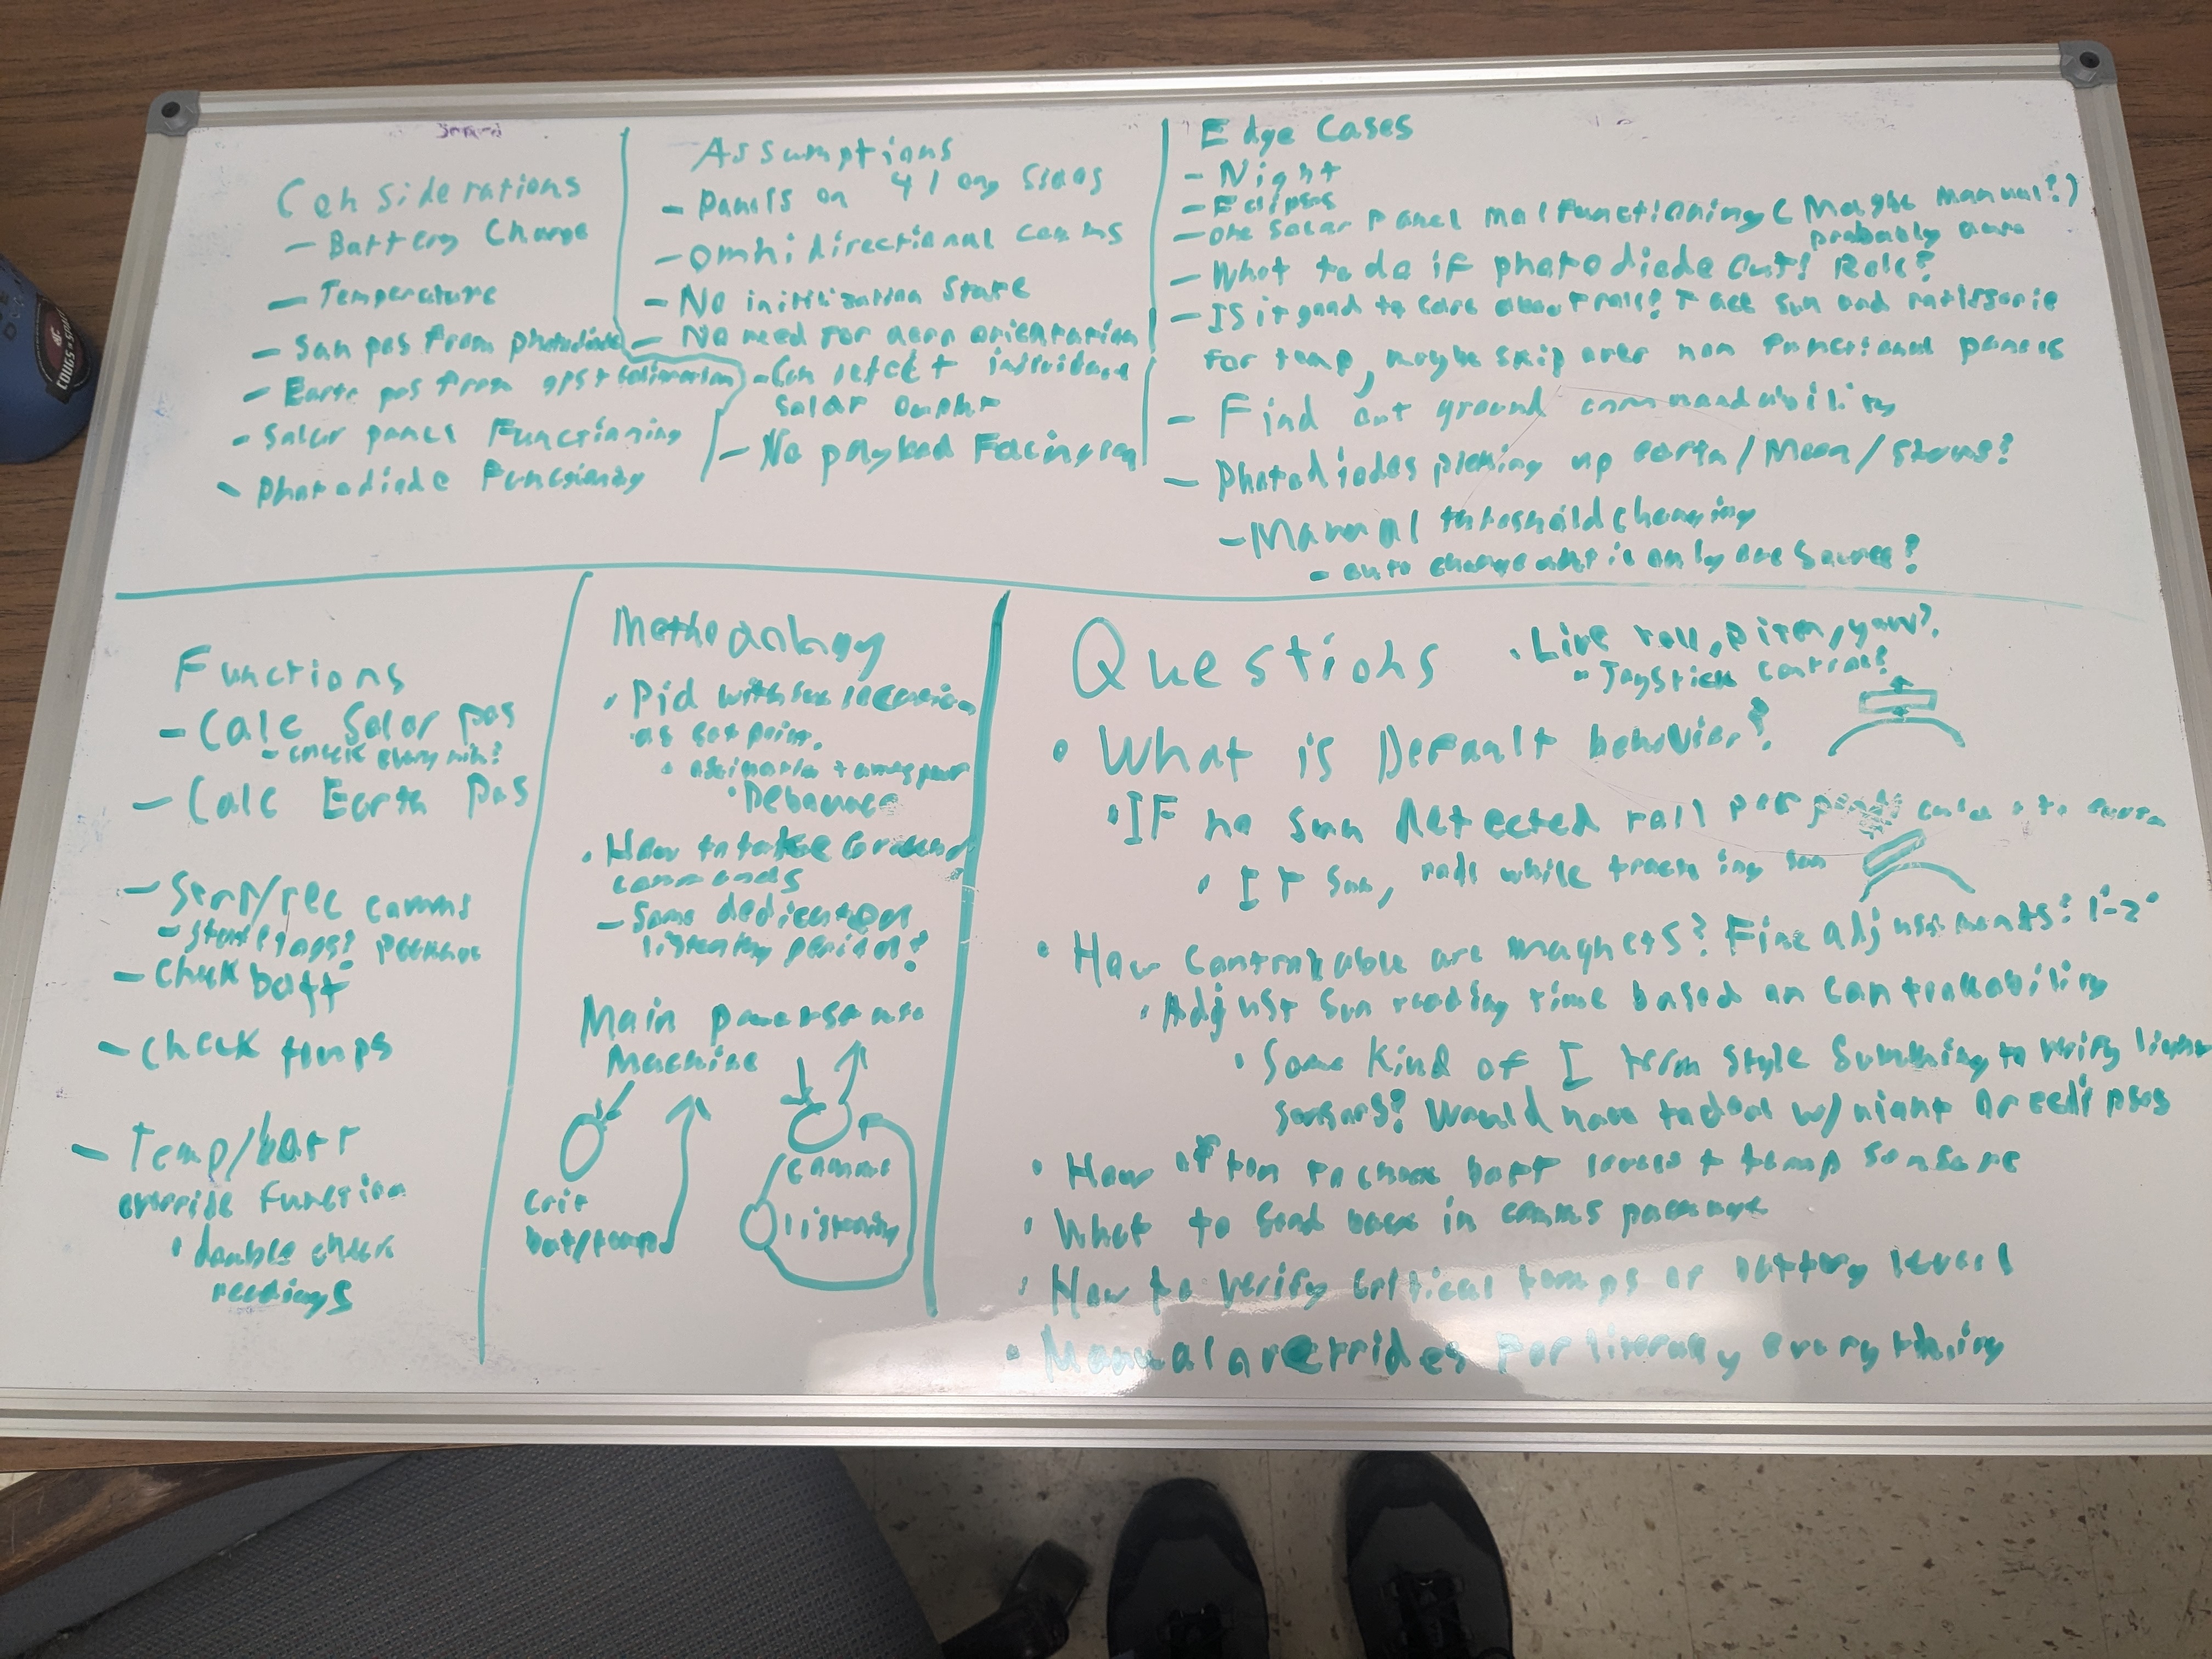 Considerations
- Battery Charge
- Temperature
- Sun pos from photodiode
- Earth pos from gps +
- Solar panel Functioning
- Photodiode Functioning
Assumptions
- Panels on 4 long sides
- Omnidirectional comms
- No initilization State
- No need for aero orientation
- Can detect individual
solar output
- No payload Facing req
Edge Cases
- Night
- Eclipses
- One Solar Panel malfunctioning (Maybe manual?)
probably auto
- What to do if photodiode out? Role?
- Is it good to care about roll? Face sun and rotisserie
for temp, maybe skip over non functional panels
- Find out ground commandability
- Photodiodes picking up earth/Moon/Stars?
- Manual threshold changing
- auto change until is only one Source?
Functions
- Calc Solar pos
- check every min?
- Calc Earth Pos
- Send/rec comms
- Store logs?
- Check batt
- Check temps
- Temp/batt
override function
• double check
readings
Methodology
• Pid with sun location
as set point.
• Debounce
• How to take Ground
commands
- Some dedicated
listening period?
Main power state
Machine
Crit
bat/temp
Comms
listening
Questions
• Live roll, pitch, yaw?
- Joystick control?
• What is Default behavior?
• IF no sun detected roll to earth
• If Sun, roll while tracking sun
• How controllable are magnets? Fine adjustments? 1°-2°
• Adjust Sun reading time based on controllability
• Some Kind of I term style Summing to verify light
sensors? Would have to deal w/ night or eclipses
• How often to check batt levels + temp sensors
• What to Send back in comms package
• How to verify critical temps or battery level
• Manual overrides for literally everything
COUGS IN SPACE